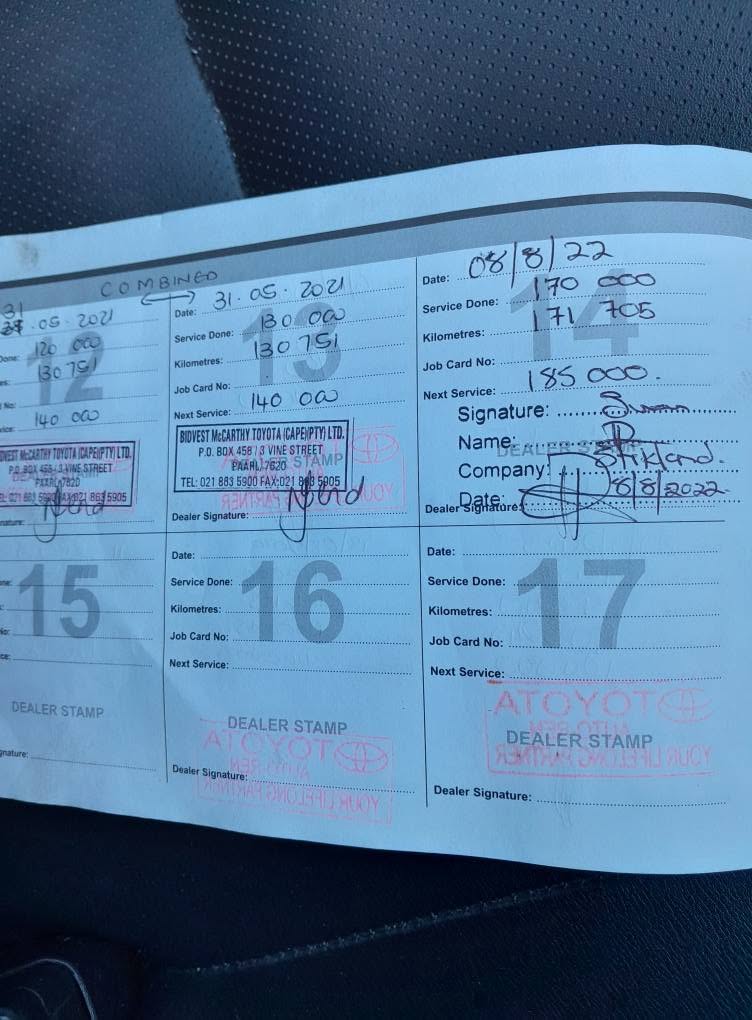 COMBINED
31
.05.2021
Done: 120 000
es: 130 751
No:
vice: 140 000
12
DVEST McCARTHY TOYOTA (CAPE)(PTY) LTD.
P.O. BOX 458 / 3 VINE STREET
PAARL, 7620
EL: 021 883 5900 FAX:021 863 5905
nature:
Date: 31.05.2021
Service Done: 130 000
Kilometres: 130 751
Job Card No:
Next Service: 140 000
13
BIDVEST McCARTHY TOYOTA (CAPE)(PTY) LTD.
P.O. BOX 458 / 3 VINE STREET
PAARL, 7620
TEL: 021 883 5900 FAX:021 863 5905
DEALER STAMP
Dealer Signature:
Date: 08/8/22
Service Done: 170 000
Kilometres: 171 705
Job Card No:
Next Service: 185 000.
14
Signature:
Name:
DEALER STAMP
Company: Stikland
Date: 8/8/2022
Dealer Signature:
15
No:
ce:
DEALER STAMP
gnature:
Date:
Service Done:
Kilometres:
Job Card No:
Next Service:
16
DEALER STAMP
TOYOTA
YOUR LIFELONG PARTNER
Dealer Signature:
Date:
Service Done:
Kilometres:
Job Card No:
Next Service:
17
TOYOTA
DEALER STAMP
YOUR LIFELONG PARTNER
Dealer Signature: